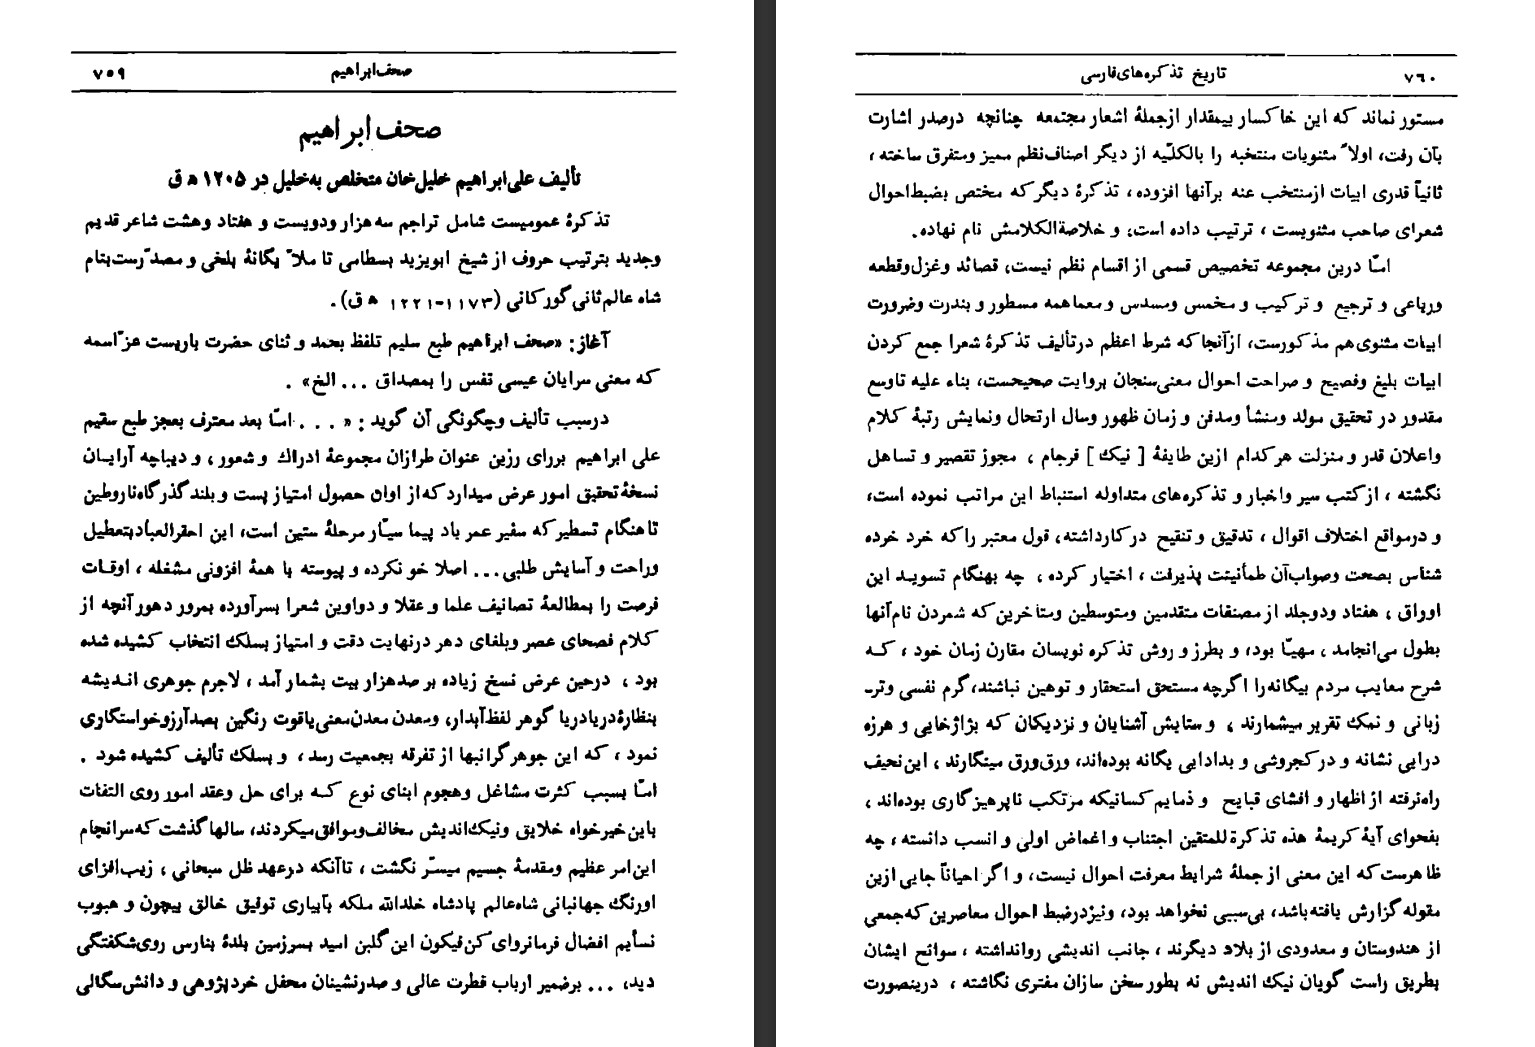 صحف‌ابراهیم ۷۵۹
صحف ابراهیم
تألیف علی‌ابراهیم خلیل‌خان متخلص به‌خلیل در ۱۲۰۵ ه ق
تذکرهٔ عمومیست شامل تراجم سه هزار ودویست و هفتاد وهشت شاعر قدیم
وجدید بترتیب حروف از شیخ ابویزید بسطامی تا ملاّ یگانهٔ بلخی و مصدّرست بنام
شاه عالم‌ثانی گورکانی (۱۱۷۳-۱۲۲۱ ه ق).
آغاز: «صحف ابراهیم طبع سلیم تلفظ بحمد و ثنای حضرت باریست عزّاسمه
که معنی سرایان عیسی نفس را بمصداق ... الخ» .
درسبب تألیف وچگونگی آن گوید : « ... امّا بعد معترف بعجز طبع سقیم
علی ابراهیم بررای رزین عنوان طرازان مجموعهٔ ادراك و شعور ، و دیباچه آرایان
نسخهٔ تحقیق امور عرض میدارد که از اوان حصول امتیاز پست و بلند گذرگاه ناروطین
تا هنگام تسطیر که سفیر عمر باد پیما سیّار مرحلهٔ ستین است، این احقرالعباد بتعطیل
وراحت و آسایش طلبی... اصلا خو نکرده و پیوسته با همهٔ افزونی مشغله ، اوقات
فرصت را بمطالعهٔ تصانیف علما و عقلا و دواوین شعرا بسرآورده بمرور دهور آنچه از
کلام فصحای عصر وبلغای دهر درنهایت دقت و امتیاز بسلك انتخاب کشیده شده
بود ، درحین عرض نسخ زیاده بر صدهزار بیت بشمار آمد ، لاجرم جوهری اندیشه
بنظارهٔ دریادریا گوهر لفظ آبدار، ومعدن معدن‌معنی یاقوت رنگین بصدآرزوخواستگاری
نمود ، که این جوهر گرانبها از تفرقه بجمعیت رسد ، و بسلك تألیف کشیده شود .
امّا بسبب کثرت مشاغل وهجوم ابنای نوع که برای حل وعقد امور روی التفات
باین خیرخواه خلایق ونیك‌اندیش مخالف‌وموافق میکردند، سالها گذشت که سرانجام
این‌امر عظیم ومقدمهٔ جسیم میسّر نگشت ، تاآنکه درعهد ظل سبحانی ، زیب‌افزای
اورنگ جهانبانی شاه‌عالم پادشاه خلدالله ملکه بآبیاری توفیق خالق بیچون و هبوب
نسأیم افضال فرمانروای کن‌فیکون این گلبن امید بسرزمین بلدهٔ بنارس روی‌شکفتگی
دید، ... برضمیر ارباب فطرت عالی و صدرنشینان محفل خردپژوهی و دانش‌سگالی
۷۶۰ تاریخ تذکره‌های‌فارسی
مستور نماند که این خاکسار بیمقدار ازجملهٔ اشعار مجتمعه چنانچه درصدر اشارت
بآن رفت، اولاً مثنویات منتخبه را بالکلّیه از دیگر اصناف‌نظم ممیز ومتفرق ساخته ،
ثانیاً قدری ابیات ازمنتخب عنه برآنها افزوده ، تذکرهٔ دیگر که مختص بضبط‌احوال
شعرای صاحب مثنویست ، ترتیب داده است، و خلاصةالکلامش نام نهاده.
امّا درین مجموعه تخصیص قسمی از اقسام نظم نیست، قصائد وغزل‌وقطعه
ورباعی و ترجیع و ترکیب و مخمس ومسدس و معماهمه مسطور و بندرت وضرورت
ابیات مثنوی‌هم مذکورست، ازآنجا که شرط اعظم درتألیف تذکرهٔ شعرا جمع کردن
ابیات بلیغ وفصیح و صراحت احوال معنی‌سنجان بروایت صحیحست، بناء علیه تاوسع
مقدور در تحقیق مولد ومنشأ ومدفن و زمان ظهور وسال ارتحال ونمایش رتبهٔ کلام
واعلان قدر و منزلت هرکدام ازین طایفهٔ [ نیك ] فرجام ، مجوز تقصیر و تساهل
نگشته ، ازکتب سیر واخبار و تذکره‌های متداوله استنباط این مراتب نموده است،
و درمواقع اختلاف اقوال ، تدقیق و تنقیح درکارداشته، قول معتبر راکه خرد خرده
شناس بصحت وصواب‌آن طمأنینت پذیرفت ، اختیار کرده ، چه بهنگام تسوید این
اوراق ، هفتاد ودوجلد از مصنفات متقدمین ومتوسطین ومتأخرین که شمردن نام‌آنها
بطول می‌انجامد ، مهیّا بود، و بطرز و روش تذکره نویسان مقارن زمان خود ، که
شرح معایب مردم بیگانه‌را اگرچه مستحق استحقار و توهین نباشند، گرم نفسی وتر-
زبانی و نمك تقریر میشمارند ، و ستایش آشنایان و نزدیکان که بژاژخایی و هرزه
درایی نشانه و در کجروشی و بدادایی یگانه بوده‌اند، ورق‌ورق مینگارند ، این‌نحیف
راه‌نرفته از اظهار و افشای قبایح و ذمایم کسانیکه مرتکب ناپرهیزگاری بوده‌اند ،
بفحوای آیهٔ کریمهٔ هذه تذکرة للمتقین اجتناب و اغماض اولی و انسب دانسته ، چه
ظاهرست که این معنی ازجملهٔ شرایط معرفت احوال نیست، و اگر احیاناً جایی ازین
مقوله گزارش یافته‌باشد، بی‌سببی نخواهد بود، ونیزدرضبط احوال معاصرین که‌جمعی
از هندوستان و معدودی از بلاد دیگرند ، جانب اندیشی روانداشته ، سوانح ایشان
بطریق راست گویان نیك اندیش نه بطور سخن سازان مفتری نگاشته ، درینصورت